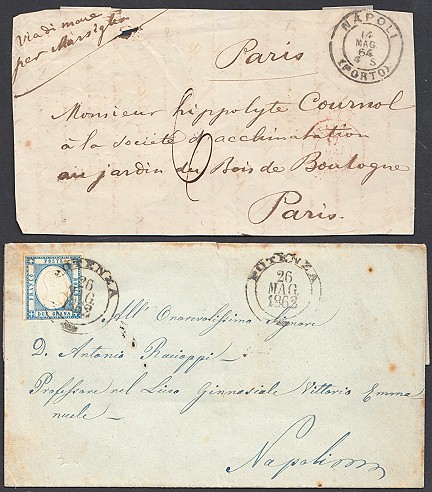 Via di mare
per Marsiglia
NAPOLI
14
MAG
64
4 S
(PORTO)
Paris
Monsieur hippolyte Cournol
à la société d'acclimatation
au jardin du Bois de Boulogne
Paris.
FRANCO
POSTE
BOLLO
DUE GRANA
POTENZA
26
MAG.
1863
POTENZA
26
MAG.
1863
All' Onorevolissimo Signore
D. Antonio Racioppi
Professore nel Liceo Ginnasiale Vittorio Emma
nuele
Napoli